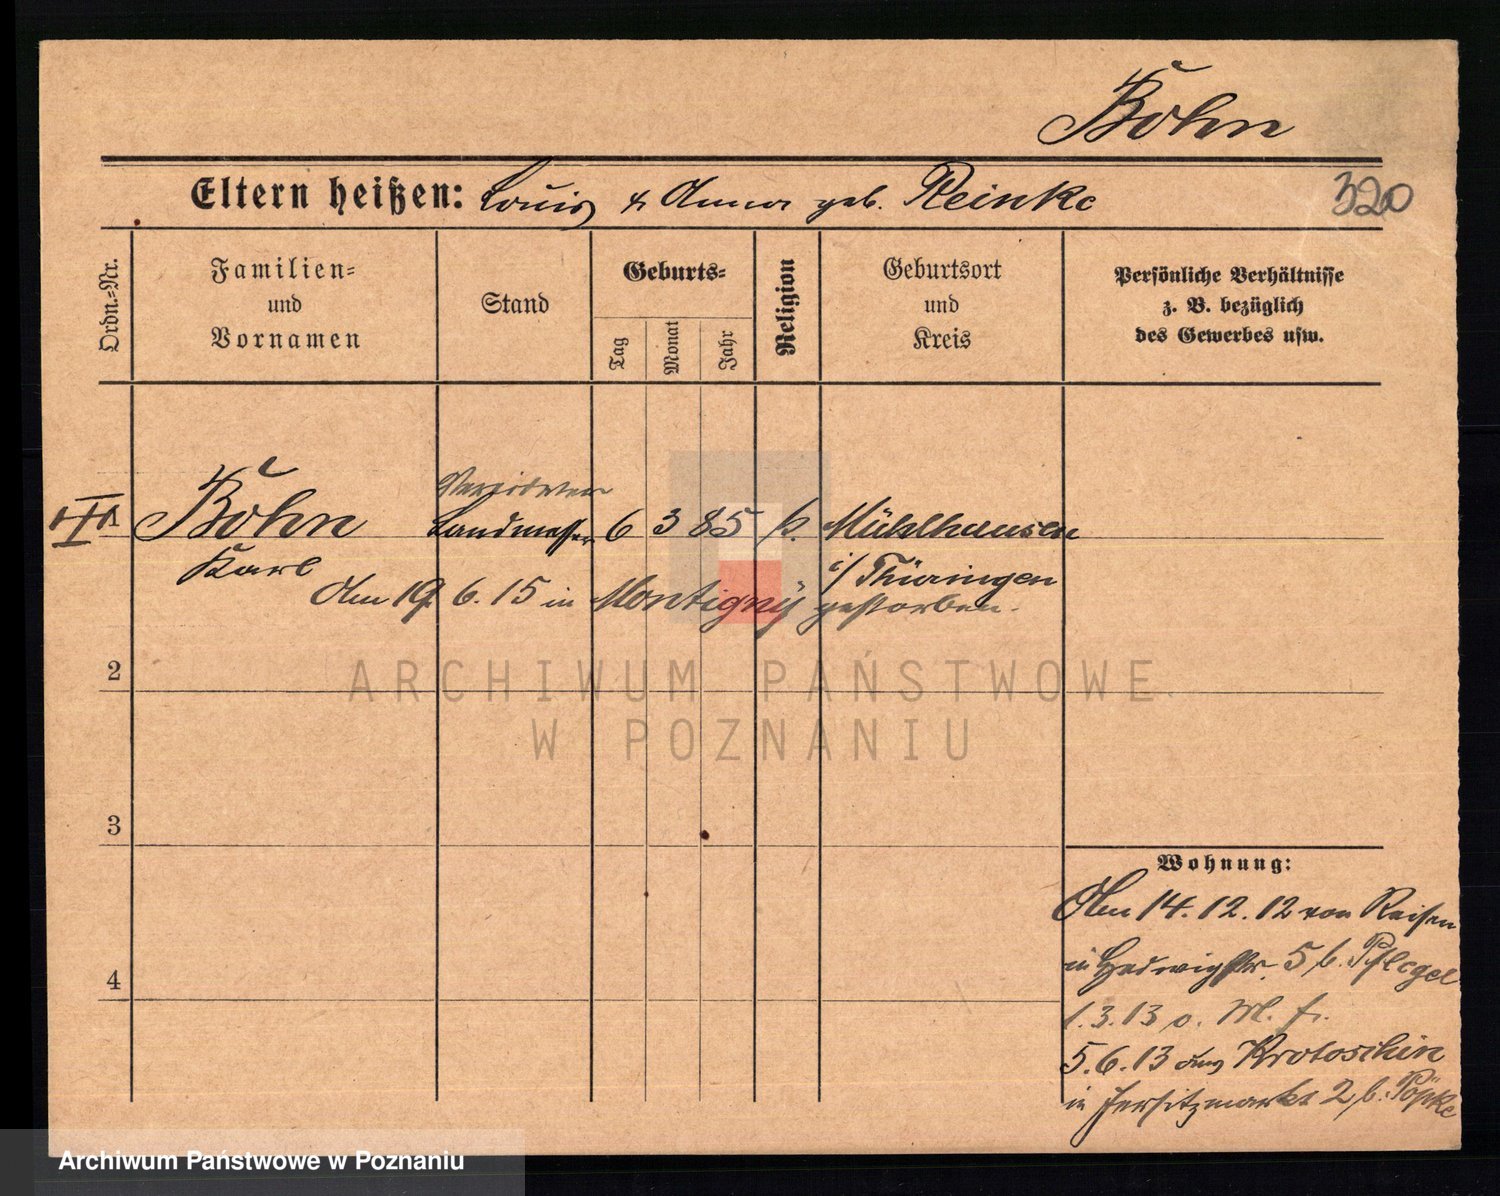 Bohn
Eltern heißen: Louis & Anna geb. Reinke
320
Ordn.=Nr.
Familien=
und
Vornamen
Stand
Geburts=
Tag
Monat
Jahr
Religion
Geburtsort
und
Kreis
Persönliche Verhältnisse
z. B. bezüglich
des Gewerbes usw.
1
Bohn
Karl
Landmesser
6 3 85
Mühlhausen
i/ Thüringen
Am 19. 6. 15 in Montigny gestorben.
2
3
4
Wohnung:
Am 14. 12. 12 von Reisen
in Hedwigstr. 5 b. Pflegel
1. 3. 13
5. 6. 13 aus Krotoschin
in Jersitzmarkt 2, b. Pöpke
ARCHIWUM PAŃSTWOWE
W POZNANIU
Archiwum Państwowe w Poznaniu